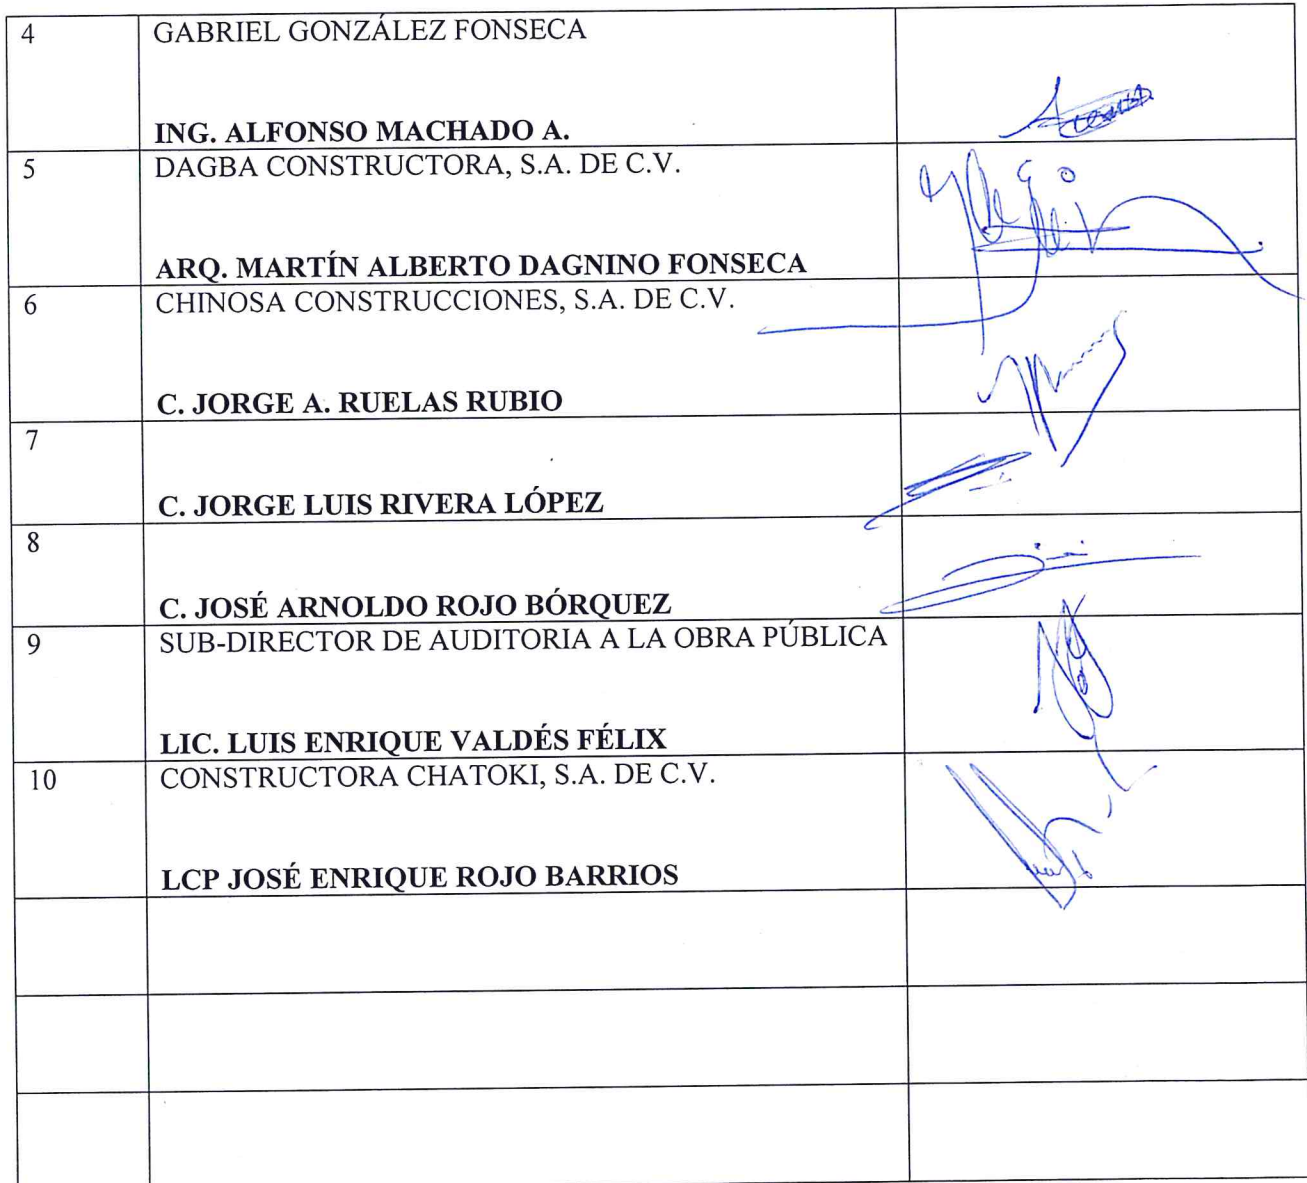 4
GABRIEL GONZÁLEZ FONSECA
ING. ALFONSO MACHADO A.
5
DAGBA CONSTRUCTORA, S.A. DE C.V.
ARQ. MARTÍN ALBERTO DAGNINO FONSECA
6
CHINOSA CONSTRUCCIONES, S.A. DE C.V.
C. JORGE A. RUELAS RUBIO
7
C. JORGE LUIS RIVERA LÓPEZ
8
C. JOSÉ ARNOLDO ROJO BÓRQUEZ
9
SUB-DIRECTOR DE AUDITORIA A LA OBRA PÚBLICA
LIC. LUIS ENRIQUE VALDÉS FÉLIX
10
CONSTRUCTORA CHATOKI, S.A. DE C.V.
LCP JOSÉ ENRIQUE ROJO BARRIOS